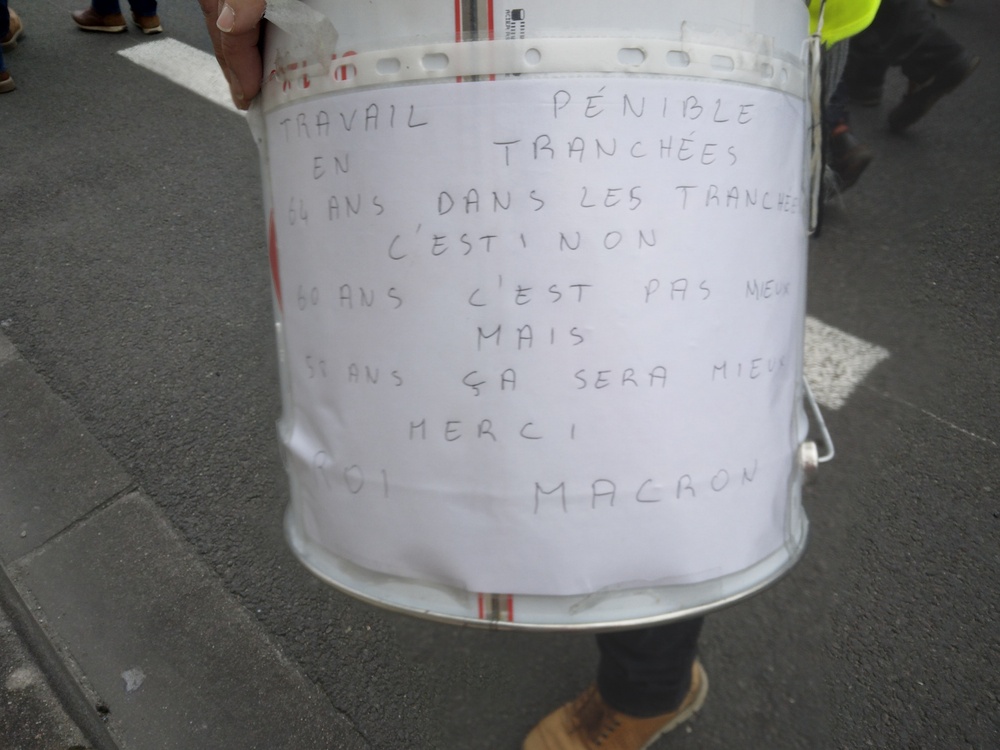 TRAVAIL PÉNIBLE
EN TRANCHÉES
64 ANS DANS LES TRANCHÉES
C'EST NON
60 ANS C'EST PAS MIEUX
MAIS
58 ANS ÇA SERA MIEUX
MERCI
ROI MACRON